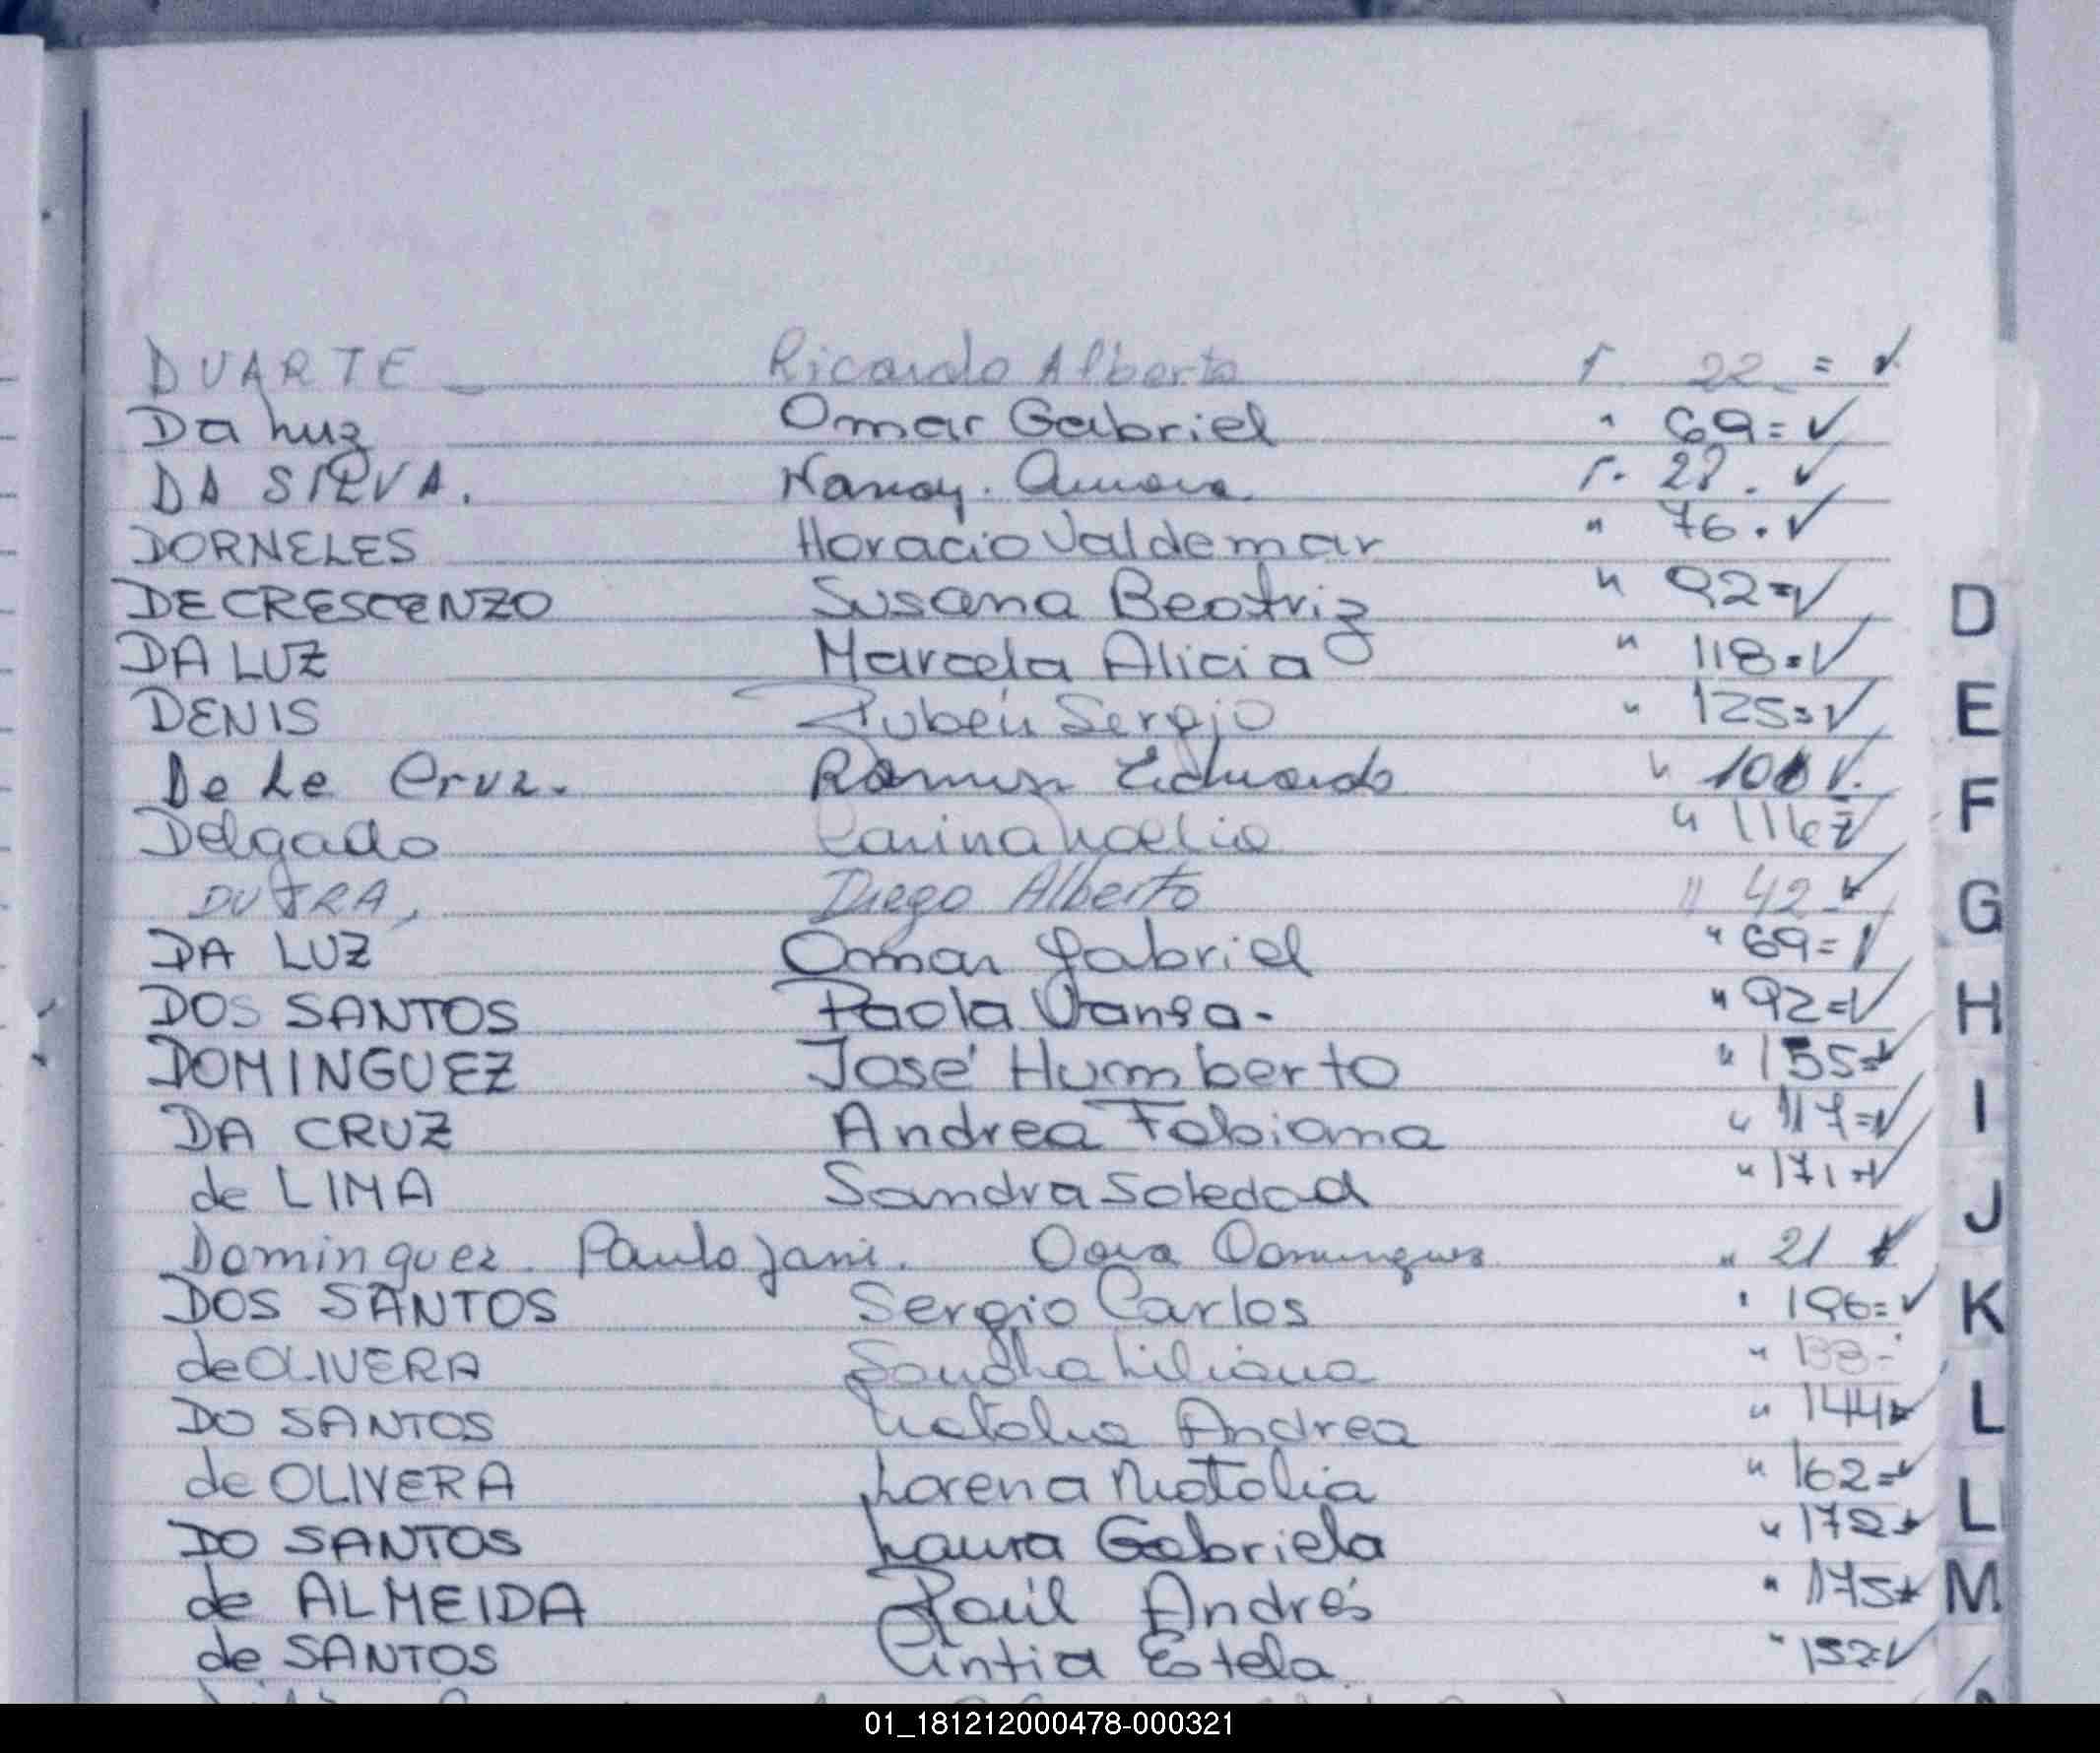 DUARTE Ricardo Alberto r. 22 = ✓
Da Luz Omar Gabriel " 69 = ✓
DA SILVA. Nancy. r. 28. ✓
DORNELES Horacio Valdemar " 76. ✓
DECRESCENZO Susana Beatriz " 92 = ✓
DA LUZ Marcela Alicia " 118 = ✓
DENIS Rubén Sergio " 125 = ✓
De La Cruz. Ramon Eduardo " ✓.
Delgado Carina Noelia " 116 = ✓
DUTRA, Diego Alberto " 42 ✓
DA LUZ Omar Gabriel " 69 = ✓
DOS SANTOS Paola Vansa - " 92 = ✓
DOMINGUEZ José Humberto " 155 = ✓
DA CRUZ Andrea Fabiana " 117 = ✓
de LIMA Sandra Soledad " 171 = ✓
Dominguez. Paulo Jani. Dominguez " 21 ✓
DOS SANTOS Sergio Carlos " 196 = ✓
de OLIVERA Sandra Liliana " 138 -
DO SANTOS Natalia Andrea " 144 ✓
de OLIVERA Lorena Natalia " 162 = ✓
DO SANTOS Laura Gabriela " 172 ✓
de ALMEIDA Raúl Andrés " 175 ✓
de SANTOS Cintia Estela " 152 = ✓
D
E
F
G
H
I
J
K
L
L
M
01_181212000478-000321